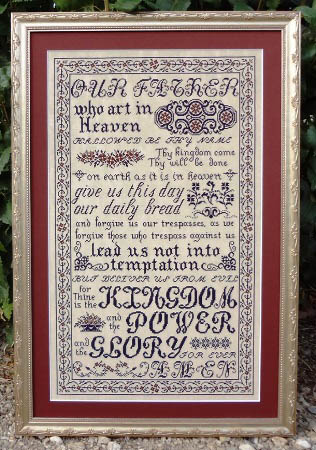 OUR FATHER
who art in
Heaven
HALLOWED BE THY NAME
Thy kingdom come
Thy will be done
on earth as it is in heaven
give us this day
our daily bread
and forgive us our trespasses, as we
forgive those who trespass against us
lead us not into
temptation
BUT DELIVER US FROM EVIL
for
Thine is the KINGDOM
and the POWER
and the GLORY
FOR EVER
AMEN